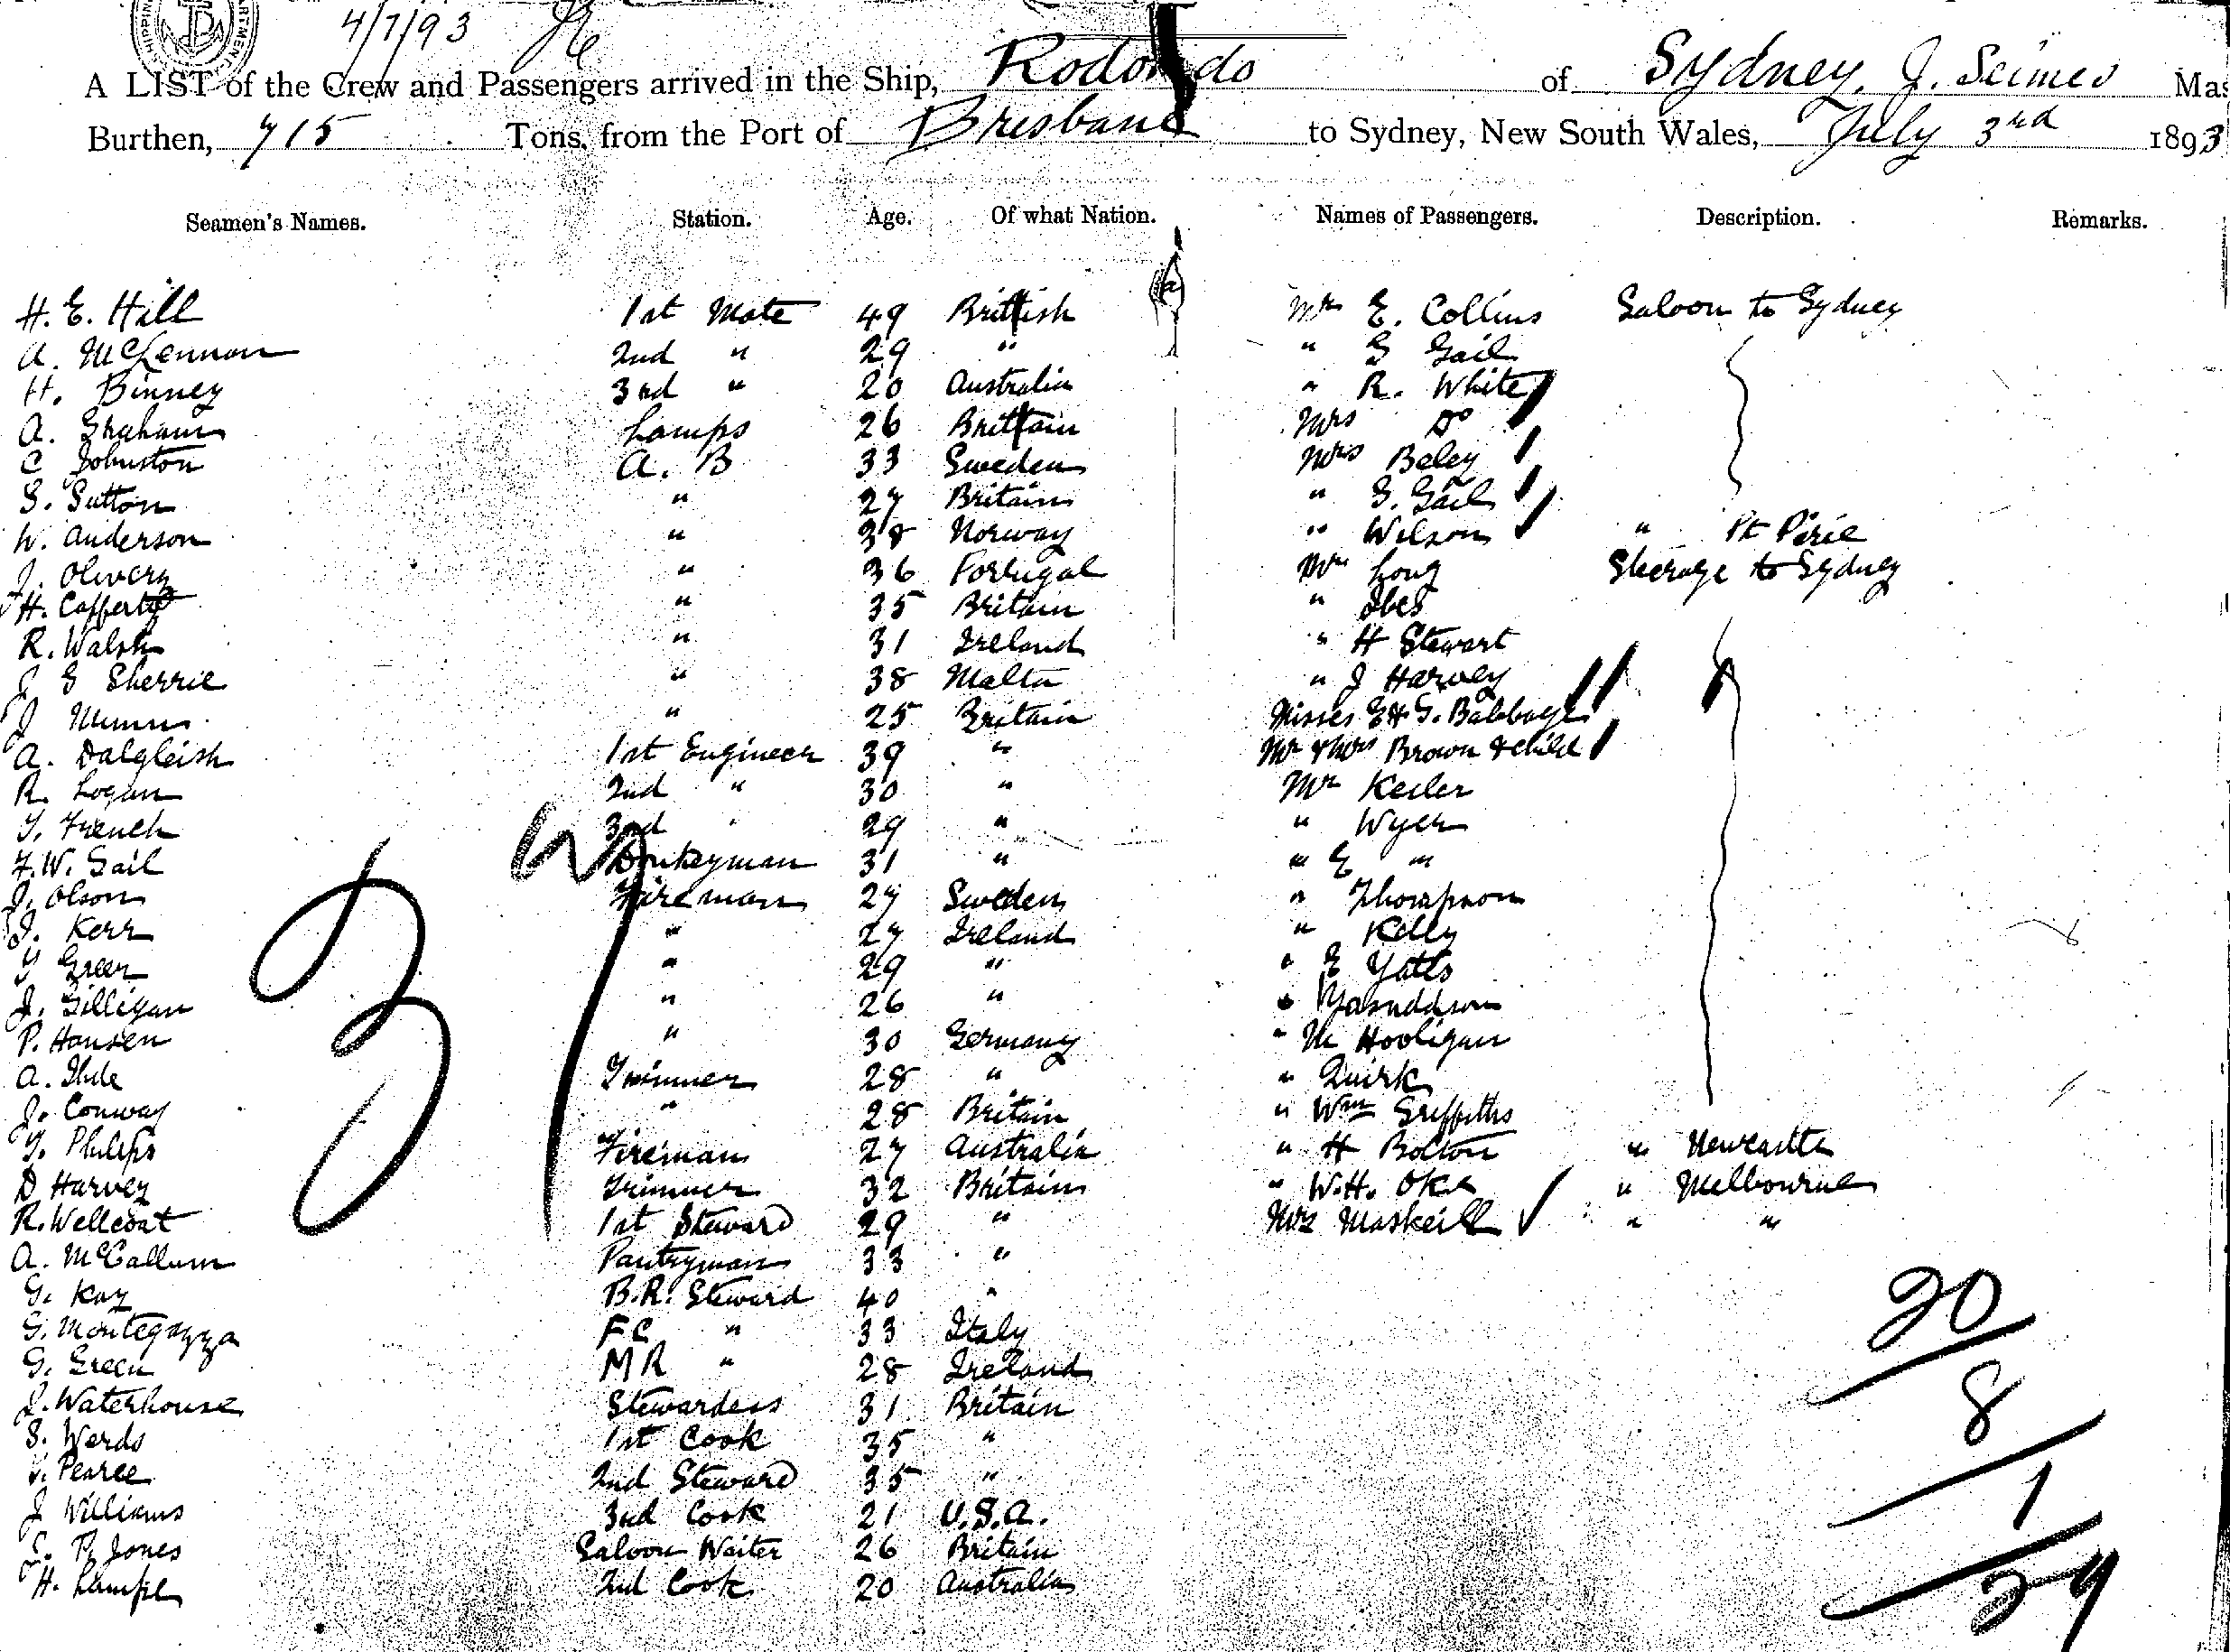 4/7/93
A LIST of the Crew and Passengers arrived in the Ship, Rodondo of Sydney, J. Mas
Burthen, 715 Tons, from the Port of Brisbane to Sydney, New South Wales, July 3rd 1893
Seamen's Names. Station. Age. Of what Nation. Names of Passengers. Description. Remarks.
H. E. Hill 1st Mate 49 Brittish Mr E. Collins Saloon to Sydney
A. McLennon 2nd " 29 " " G Gail
H. Binney 3rd " 20 Australia " R. White
A. Graham Lamps 26 Brittain Mrs Do
C Johnston A. B 33 Sweden Mrs Beley
S. Sutton " 27 Britain " G. Gail
W. Anderson " 38 Norway " Wilson " Pt Pirie
J. Olivery " 36 Portugal Mr Long Steerage to Sydney
H. Cafferty " 35 Britain " Ibes
R. Walsh " 31 Ireland " H Stewart
J G Sherrie " 38 Malta " J Harvey
J " 25 Britain Misses E & G. Babbage
A. Dalgleish 1st Engineer 39 " Mr & Mrs Brown & child
R. Logan 2nd " 30 " Mr Keiler
T. French 3rd " 29 " " Wyer
F. W. Gail Donkeyman 31 " " E "
J. Olson Fireman 27 Sweden " Thompson
J. Kerr " 27 Ireland " Kelly
T Green " 29 " " E Yatts
J. Gilligan " 26 " "
P. Hansen " 30 Germany " M Hooligan
A. Ihde Trimmer 28 " " Quirk
J. Conway " 28 Britain " Wm Griffiths
T. Philips Fireman 27 Australia " H Bolton " Newcastle
D Harvey Trimmer 32 Britain " W. H. Oke " Melbourne
R. Wellcoat 1st Steward 29 " Mrs Maskeill " "
A. McCallum Pantryman 33 "
G. Kay B.R. Steward 40 "
G. Montegazza FC " 33 Italy
G. Green MR " 28 Ireland
J. Waterhouse Stewardess 31 Britain
S. Werds 1st Cook 35 "
Pearce 2nd Steward 35 "
J Williams 3rd Cook 21 U.S.A.
P. Jones Saloon Waiter 26 Britain
H. Lample 2nd Cook 20 Australia
20
8
1
29